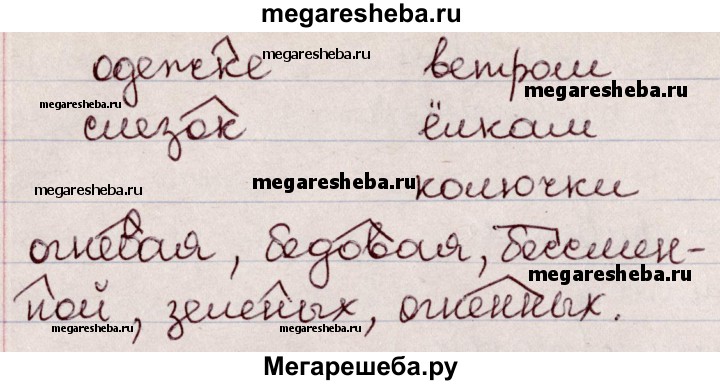 megaresheba.ru
одежке ветром
megaresheba.ru
megaresheba.ru
megaresheba.ru
слезок ёлкам
megaresheba.ru
megaresheba.ru
колючки
огневая, бедовая, бессмен-
megaresheba.ru
ной, зеленых, огненных.
megaresheba.ru
megaresheba.ru
Мегарешеба.ру